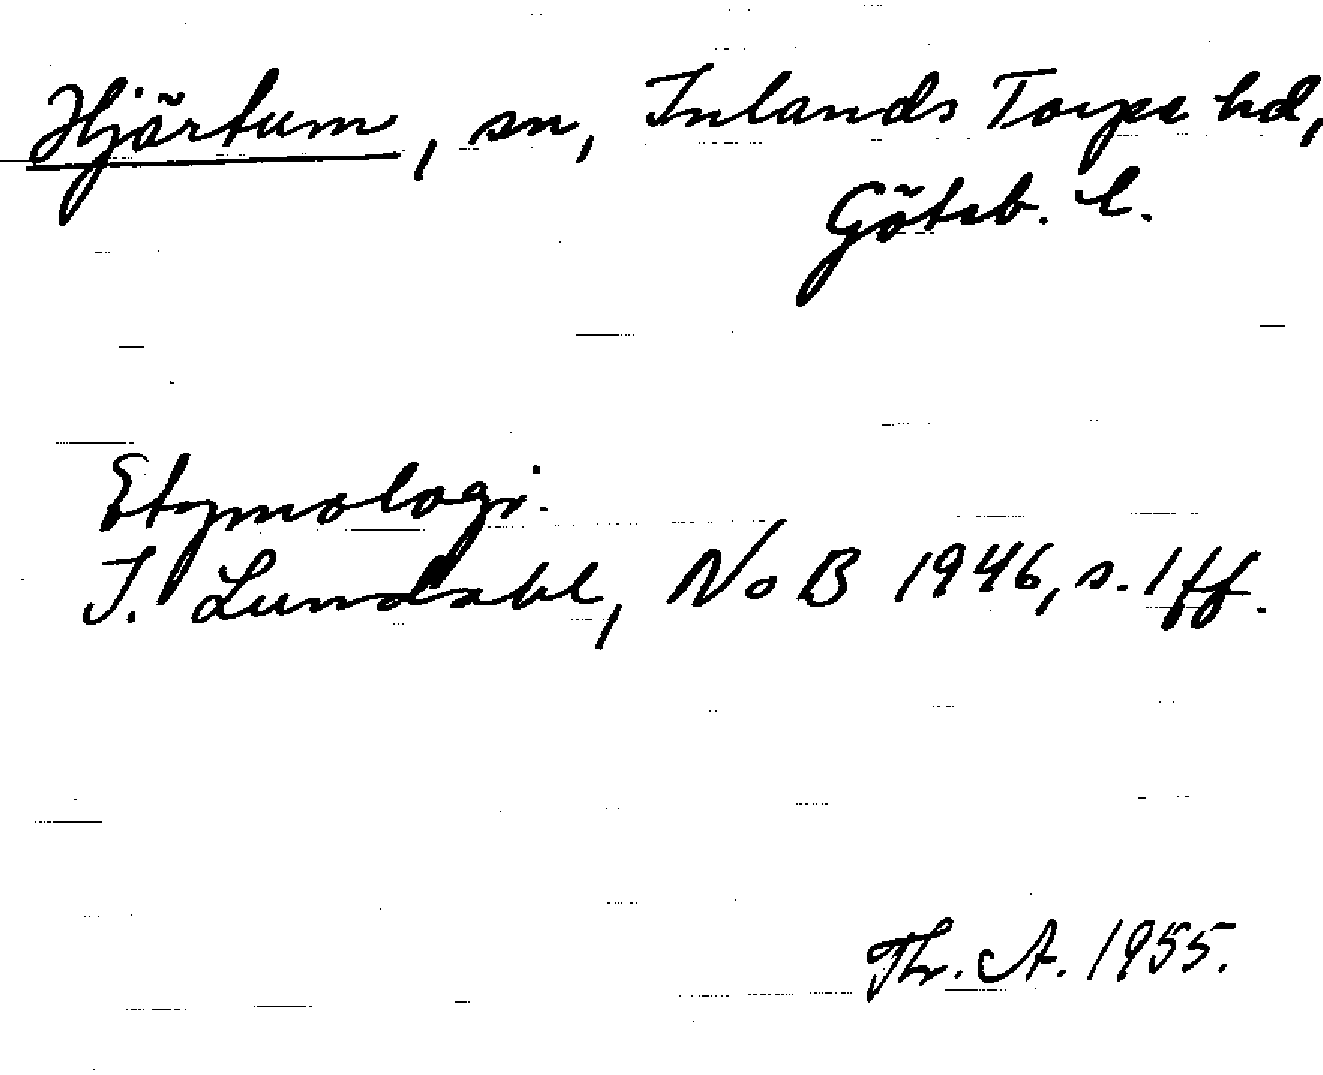 Hjärtum, sn, Inlands Torpe hd,
Göteb. l.
Etymologi.
I. Lundahl, NoB 1946, s. 1 ff.
Th. A. 1955.